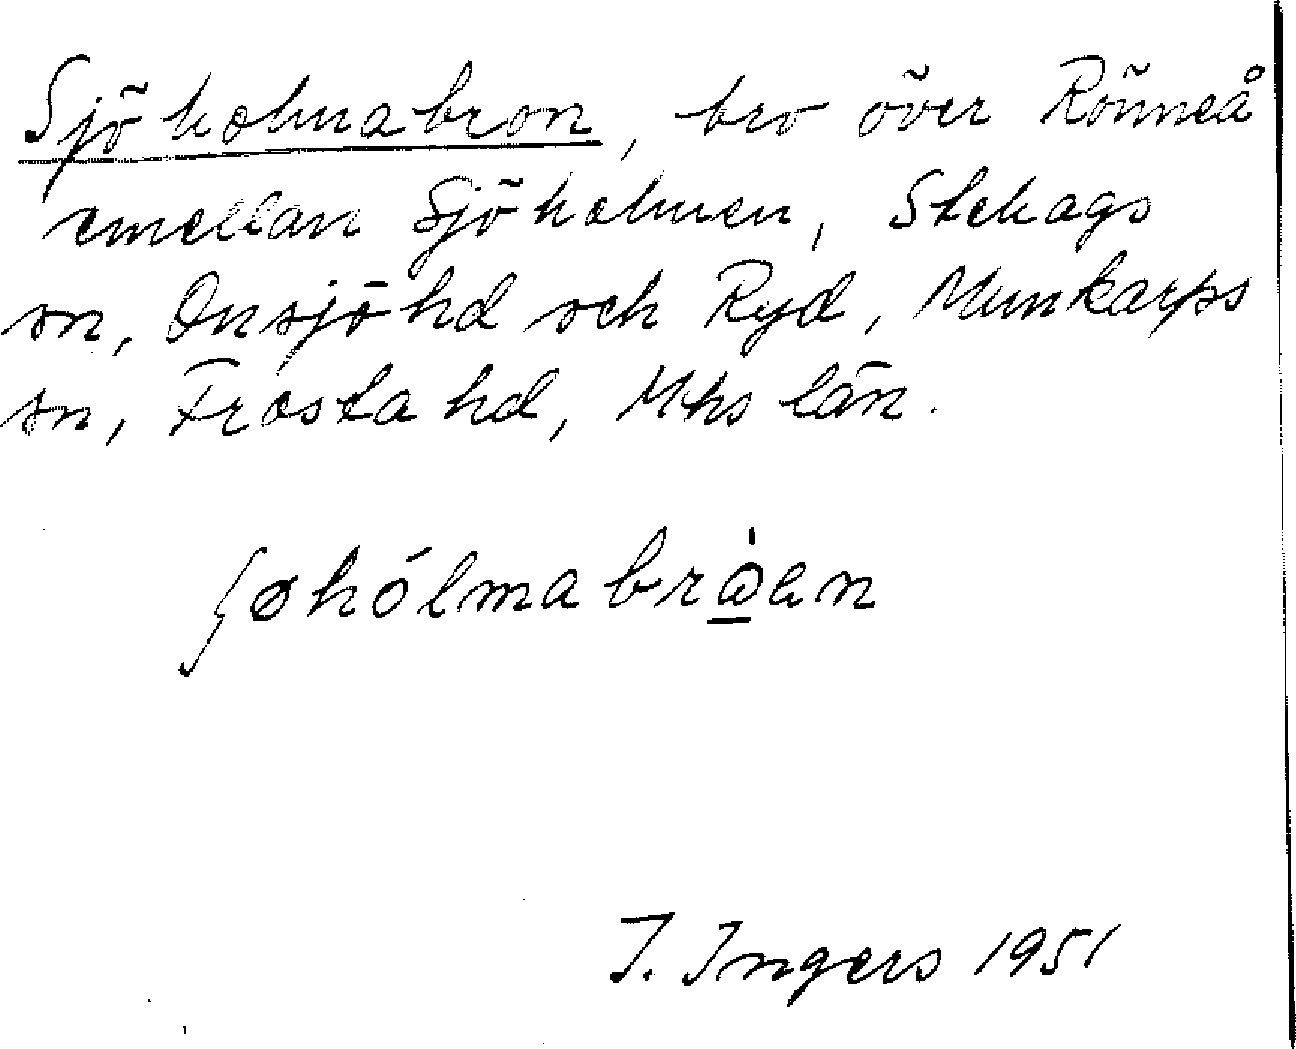 Sjöholmabron, bro över Rönneå
emellan Sjöholmen, Stehags
sn, Onsjö hd och Ryd, Munkarps
sn, Frosta hd, Mhs län.
ʃøhólmabrὰen
I. Ingers 1951